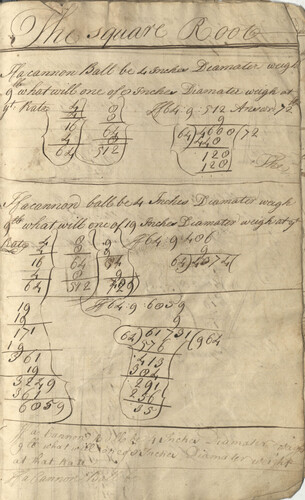 The Square Root
If a cannon Ball be 4 Inches Diamater weigh
9 lb what will one of 8 Inches Diamater weigh at
yt Rate
4 8 If 64 : 9 : 512 Answer 72
4 8 9
16 64 64)4608(72
4 8 448
64 512 128
128
If a cannon ball be 4 Inches Diamater weigh
9 lb what will one of 19 Inches Diamater weigh at yt
Rate 4 8 If 64 : 9
4 8 9
16 64
4 8
64 512
19 If 64 : 9 : 6859
19 9
171 64)61731(964
19 576
361 413
19 384
3249 291
361 256
6859 35
If a Cannon Ball Inches Diamater
9 lb what will one Inches Diamater weigh
at that Rate
If a Cannon Ball